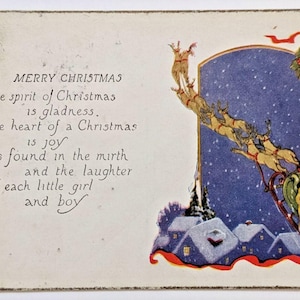 MERRY CHRISTMAS
e spirit of Christmas
is gladness.
e heart of a Christmas
is joy
s found in the mirth
and the laughter
each little girl
and boy